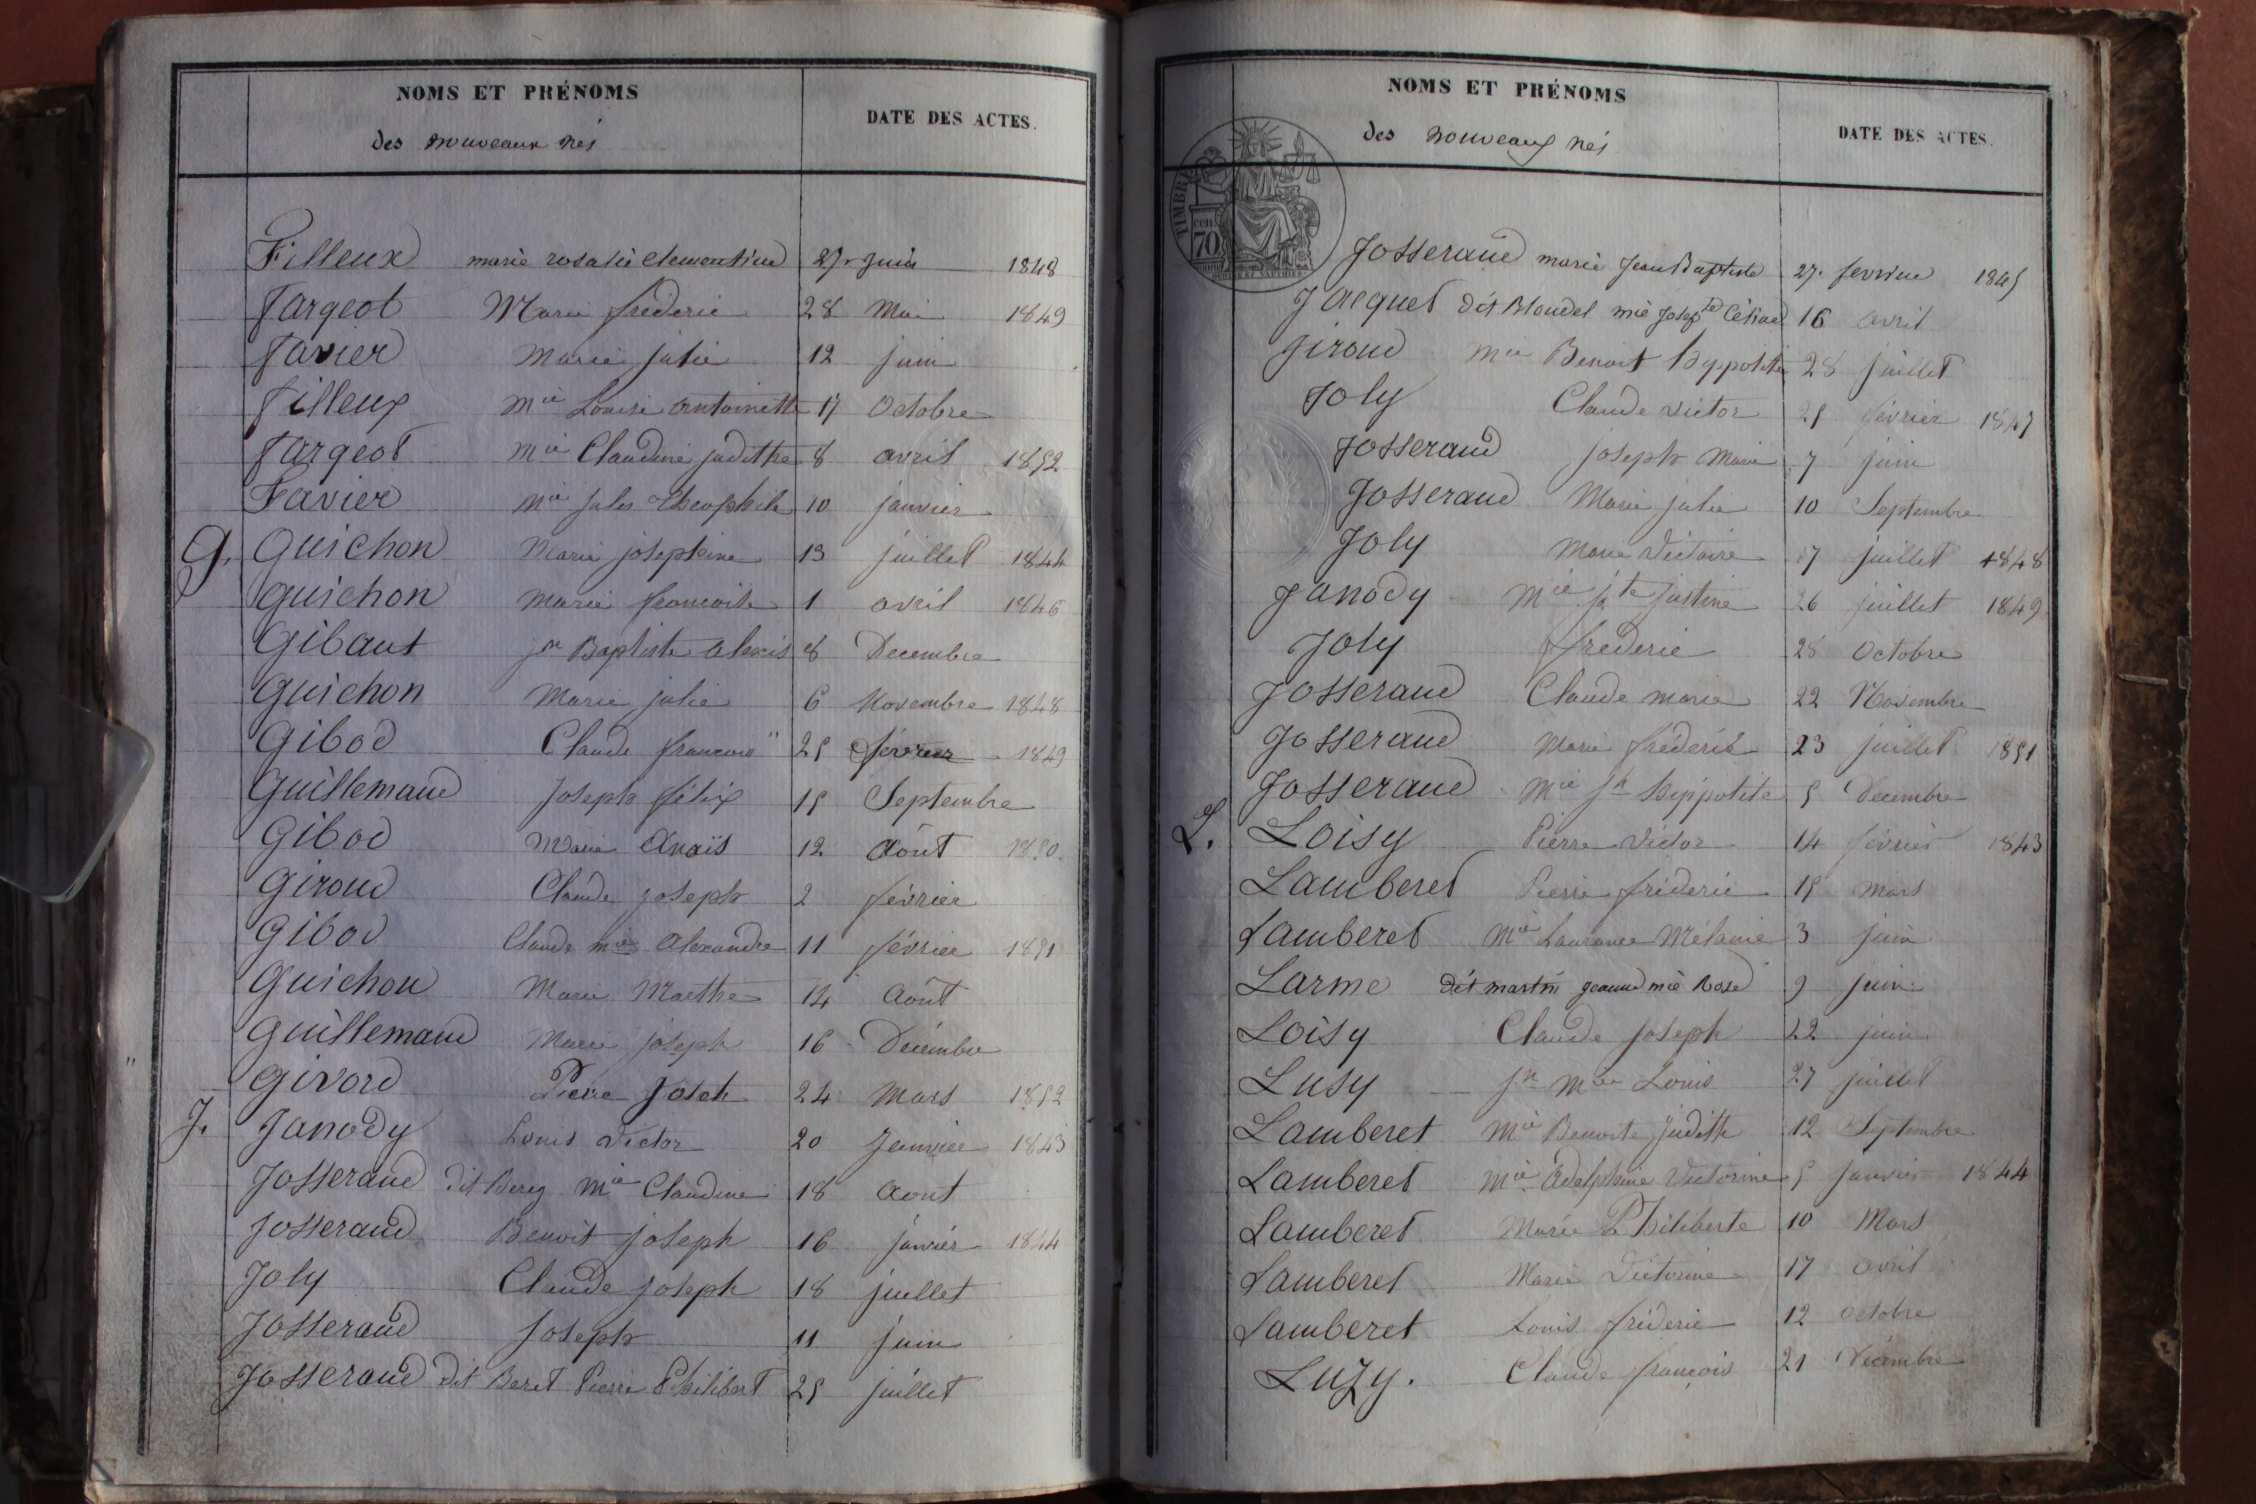 NOMS ET PRÉNOMS
des nouveaux nés
DATE DES ACTES.
Filleux marie rosalie clementine 27 juin 1848
Fargeot Marie frederic 28 Mai 1849
Favier Marie julie 12 juin
Filleux Mie Louise antoinette 17 Octobre
Fargeot Mie Claudine judithe 8 avril 1852
Favier Mie jules theophile 10 janvier
G. Guichon Marie josephine 13 juillet 1844
Guichon Marie françoise 1 avril 1846
Gibaut jn Baptiste alexis 8 Decembre
Guichon Marie julie 6 Novembre 1848
Gibod Claude françois 25 février 1849
Guillemaud Joseph félix 15 Septembre
Gibod Marie Anaïs 12 Août 1850
Giroud Claude joseph 2 février
Gibod Claude mie Alexandre 11 février 1851
Guichon Marie Marthe 14 Août
Guillemaud Marie joseph 16 Décembre
Givord Pierre Joseh 24 Mars 1852
J. Janody Louis Victor 20 Janvier 1843
Josserand dit Berey Mie Claudine 18 Aout
Josserand Benoit joseph 16 janvier 1844
Joly Claude joseph 18 juillet
Josserand Joseph 11 juin
Josserand dit Beret Pierre Philibert 25 juillet
NOMS ET PRÉNOMS
des nouveaux nés
DATE DES ACTES.
TIMBRE
70
Josserand marie Jean Baptiste 27 fevrier 1845
Jacquet dit Blondel mie Josepte Célina 16 avril
Giroud Mie Benoit hyppolite 28 juillet
Joly Claude victor 25 février 1847
Josserand joseph Marie 7 juin
Josserand Marie julie 10 Septembre
Joly Marie Victoire 17 juillet 1848
Janody Mie jte justine 26 juillet 1849
Joly frederic 28 Octobre
Josserand Claude marie 22 Novembre
Josserand Marie fréderic 23 juillet 1851
Josserand Mie jh hippolite 5 Decembre
L. Loisy Pierre Victor 14 février 1843
Lamberet Pierre fréderic 15 Mars
Lamberet Mie Laurance Mélanie 3 juin
Larme dit martin jeanne mie Rose 9 juin
Loisy Claude joseph 22 juin
Lusy jn Mie Louis 27 juillet
Lamberet Mie Benoite Judith 12 Septembre
Lamberet Mie Adelphine Victorine 5 Janvier 1844
Lamberet Marie Philiberte 10 Mars
Lamberet Marie Victorine 17 avril
Lamberet Louis fréderic 12 octobre
Luzy. Claude françois 21 Décembre